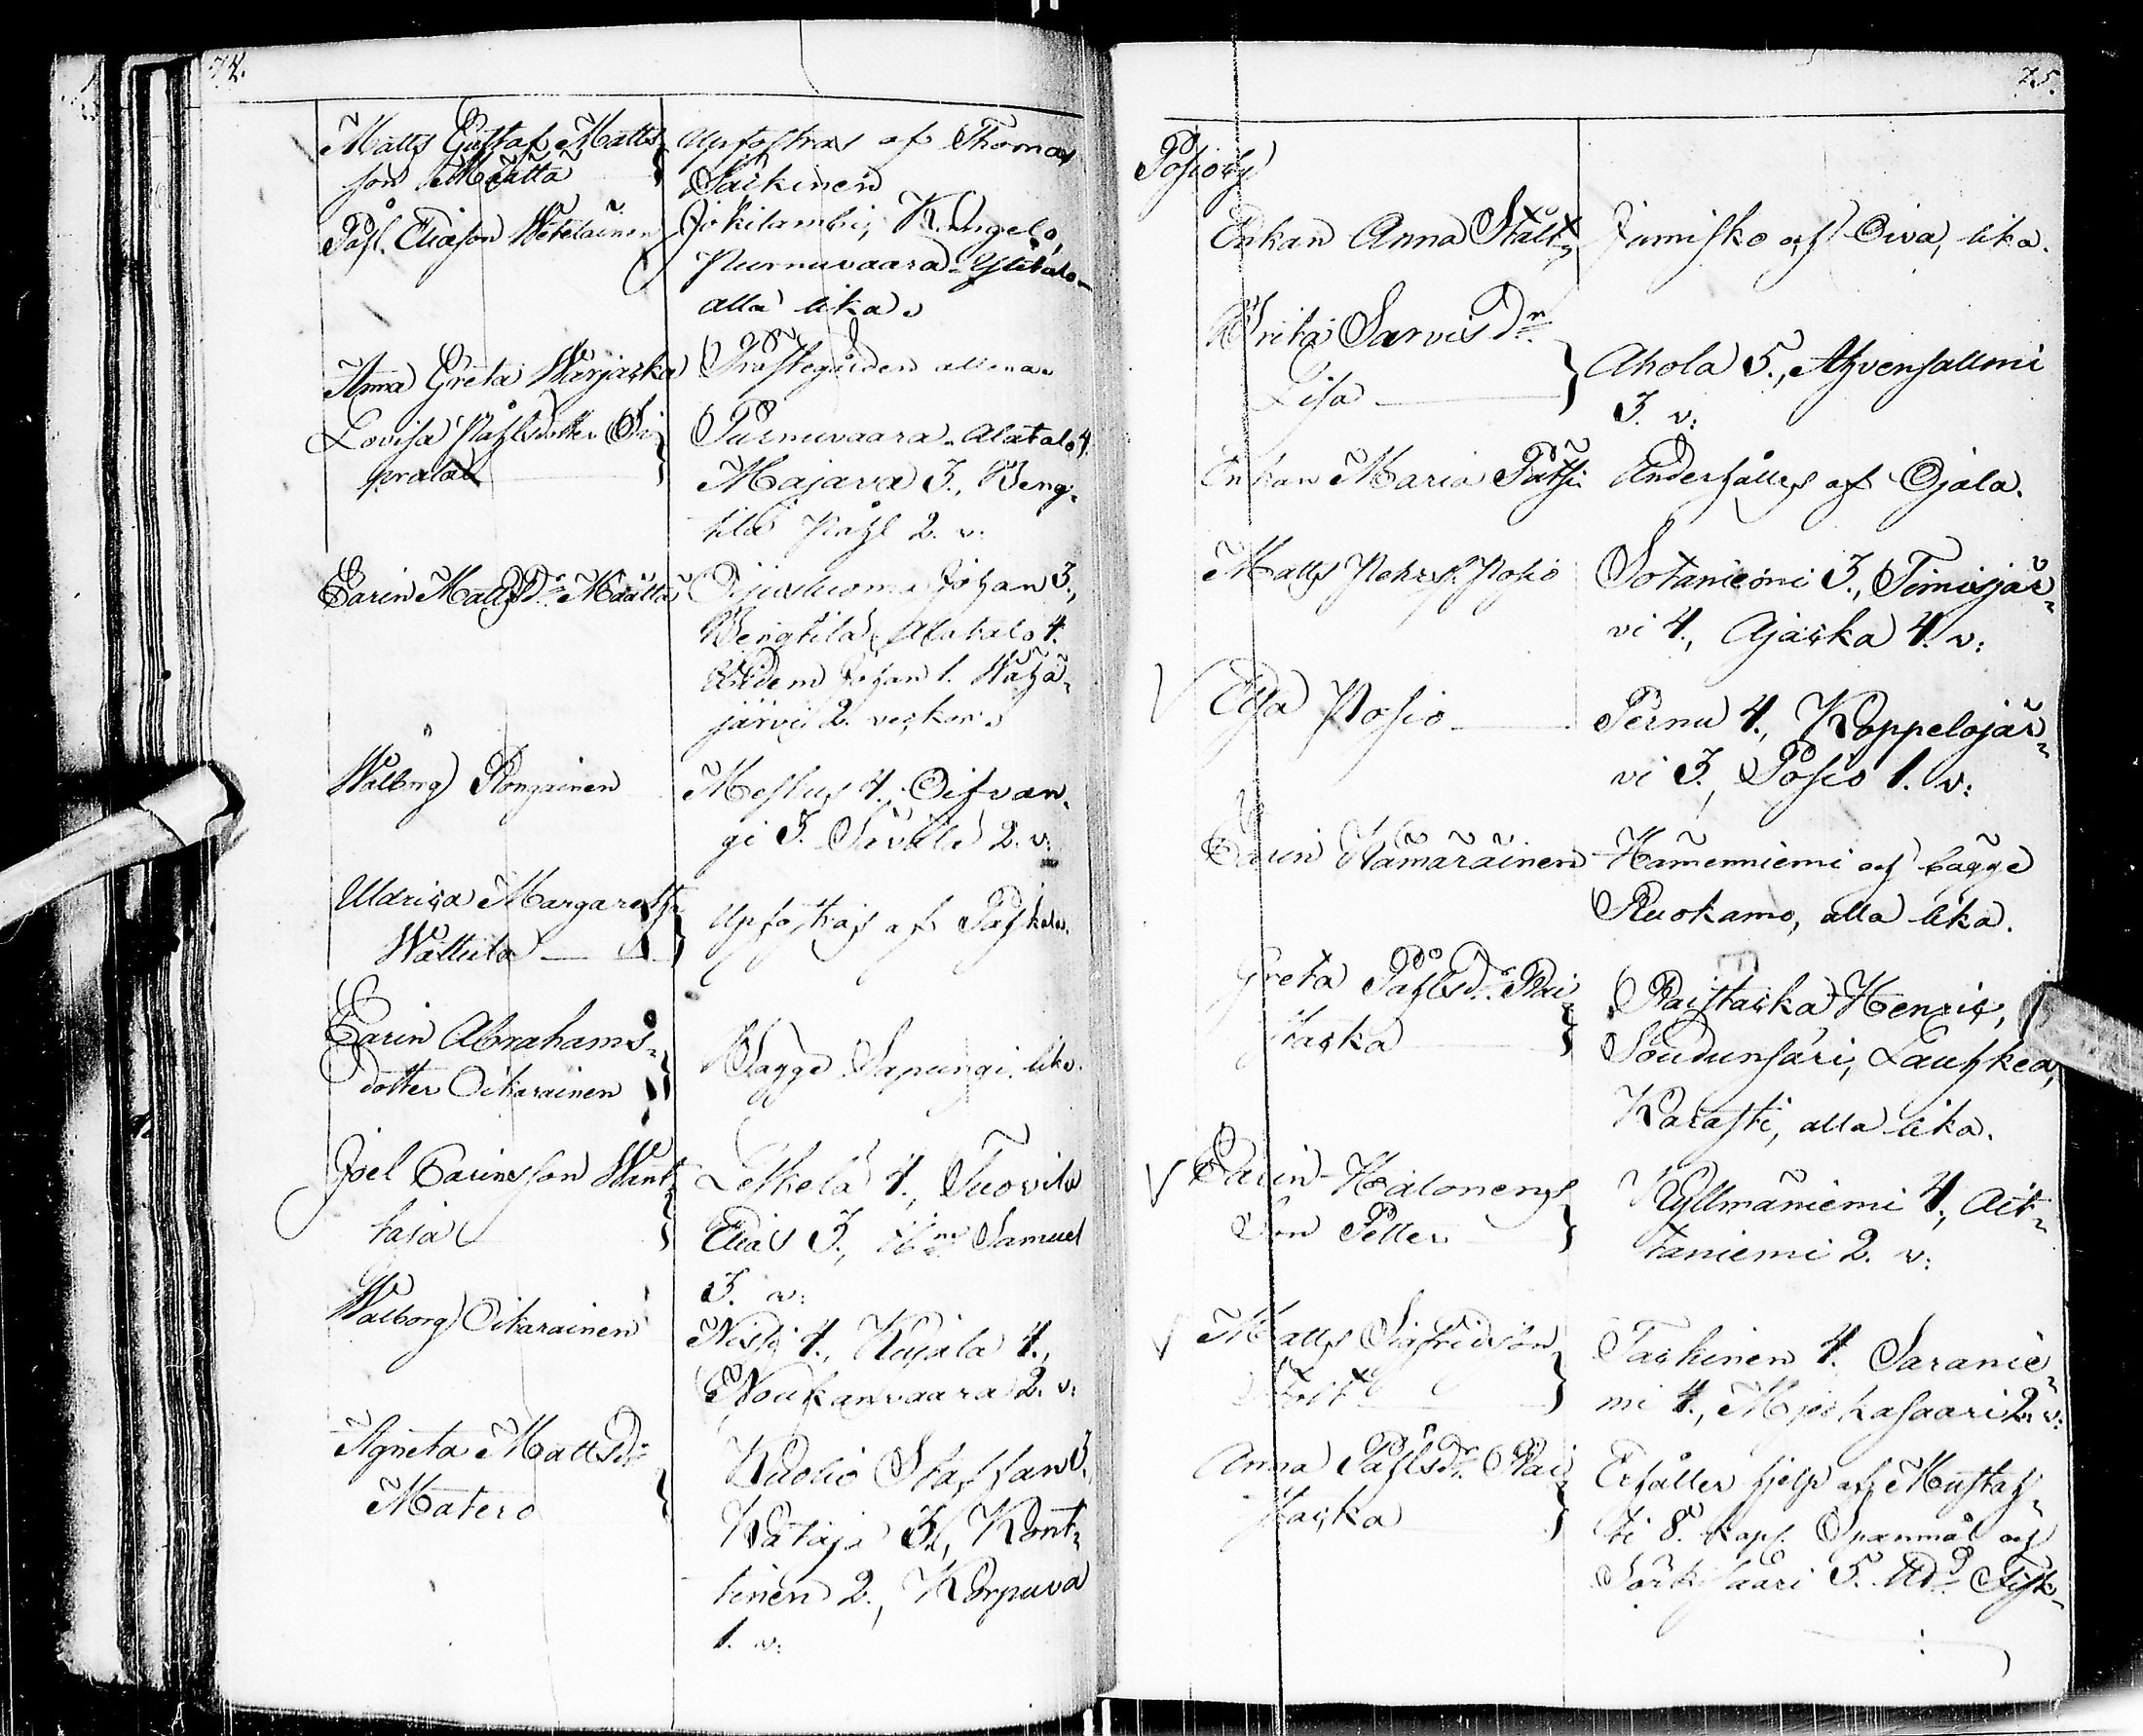 74.
Matts Gustaf Matts
son Määttä
Upfostras af Thomas
Säkinen
Påhl Eliæson Wetelainen
Jokilambi, Kangelo,
Purnuvaara Ylitalo
alla lika.
Anna Greta Warjaska
Prästegården allena.
Lovisa Påhlsdotter Si
prala
Purnuvaara Alatalo 4.
Majava 3., Beng-
tila Påhl 2. v.
Carin Matts Dr Määttä
Johan 3.,
Bengtila Alatalo 4.
Ibidem Johan 1.
järvi 2. veckor.
Walborg Rongainen
Mestus 4., Oifvan-
gi 3. Sävilä 2. v.
Uldrica Margaretha
Wattula
Upfostras af
Carin Abrahams
dotter Oikarainen
Bagge Sapungi lika.
Joel Carinsson Want
taja
Leskelä 4., Tuovila
Elias 3., Ibm Samuel
3. v:
Walborg Oikarainen
Niski 4., Kujala 4.,
Noukanvaara 2. v:
Agneta Matts Dr
Matero
Kuolio Staffan 3.
Kataja 3., Kont-
tinen 2., Korpuva
1. v:
75.
Posioby
Enkan Anna Stålt
Jumisko och Oiva, lika.
Brita Sarvis Dr
Lisa
Ahola 5., Ahvensallmi
3. v:
Enkan Maria Pätsi
Underhålles af Ojala.
Matts Pehrss. Posio
Sotaniemi 3., Timisjär-
vi 4., Ajaska 4. v:
Elsa Posio
Pernu 4., Koppelojär-
vi 3., Posio 1. v:
Carin Hämäräinen
Hämenniemi och bägge
Ruokamo, alla lika.
Greta Påhls Dr Rai
staska
Raistaska Henric,
Soudunsari, Lauhkea,
Karasti, alla lika.
Carin Halonens
Son Petter
Kyllmäniemi 4., Ait-
taniemi 2. v:
Matts Sigfridsson
Taskinen 4. Saranie-
mi 4., Mjöskasaari 2. v:
Anna Påhls Dr Rai
staska
Erhåller hjelp af Mustah-
ti 8. kap. Spanmål och
Särkisaari 5. Fisk